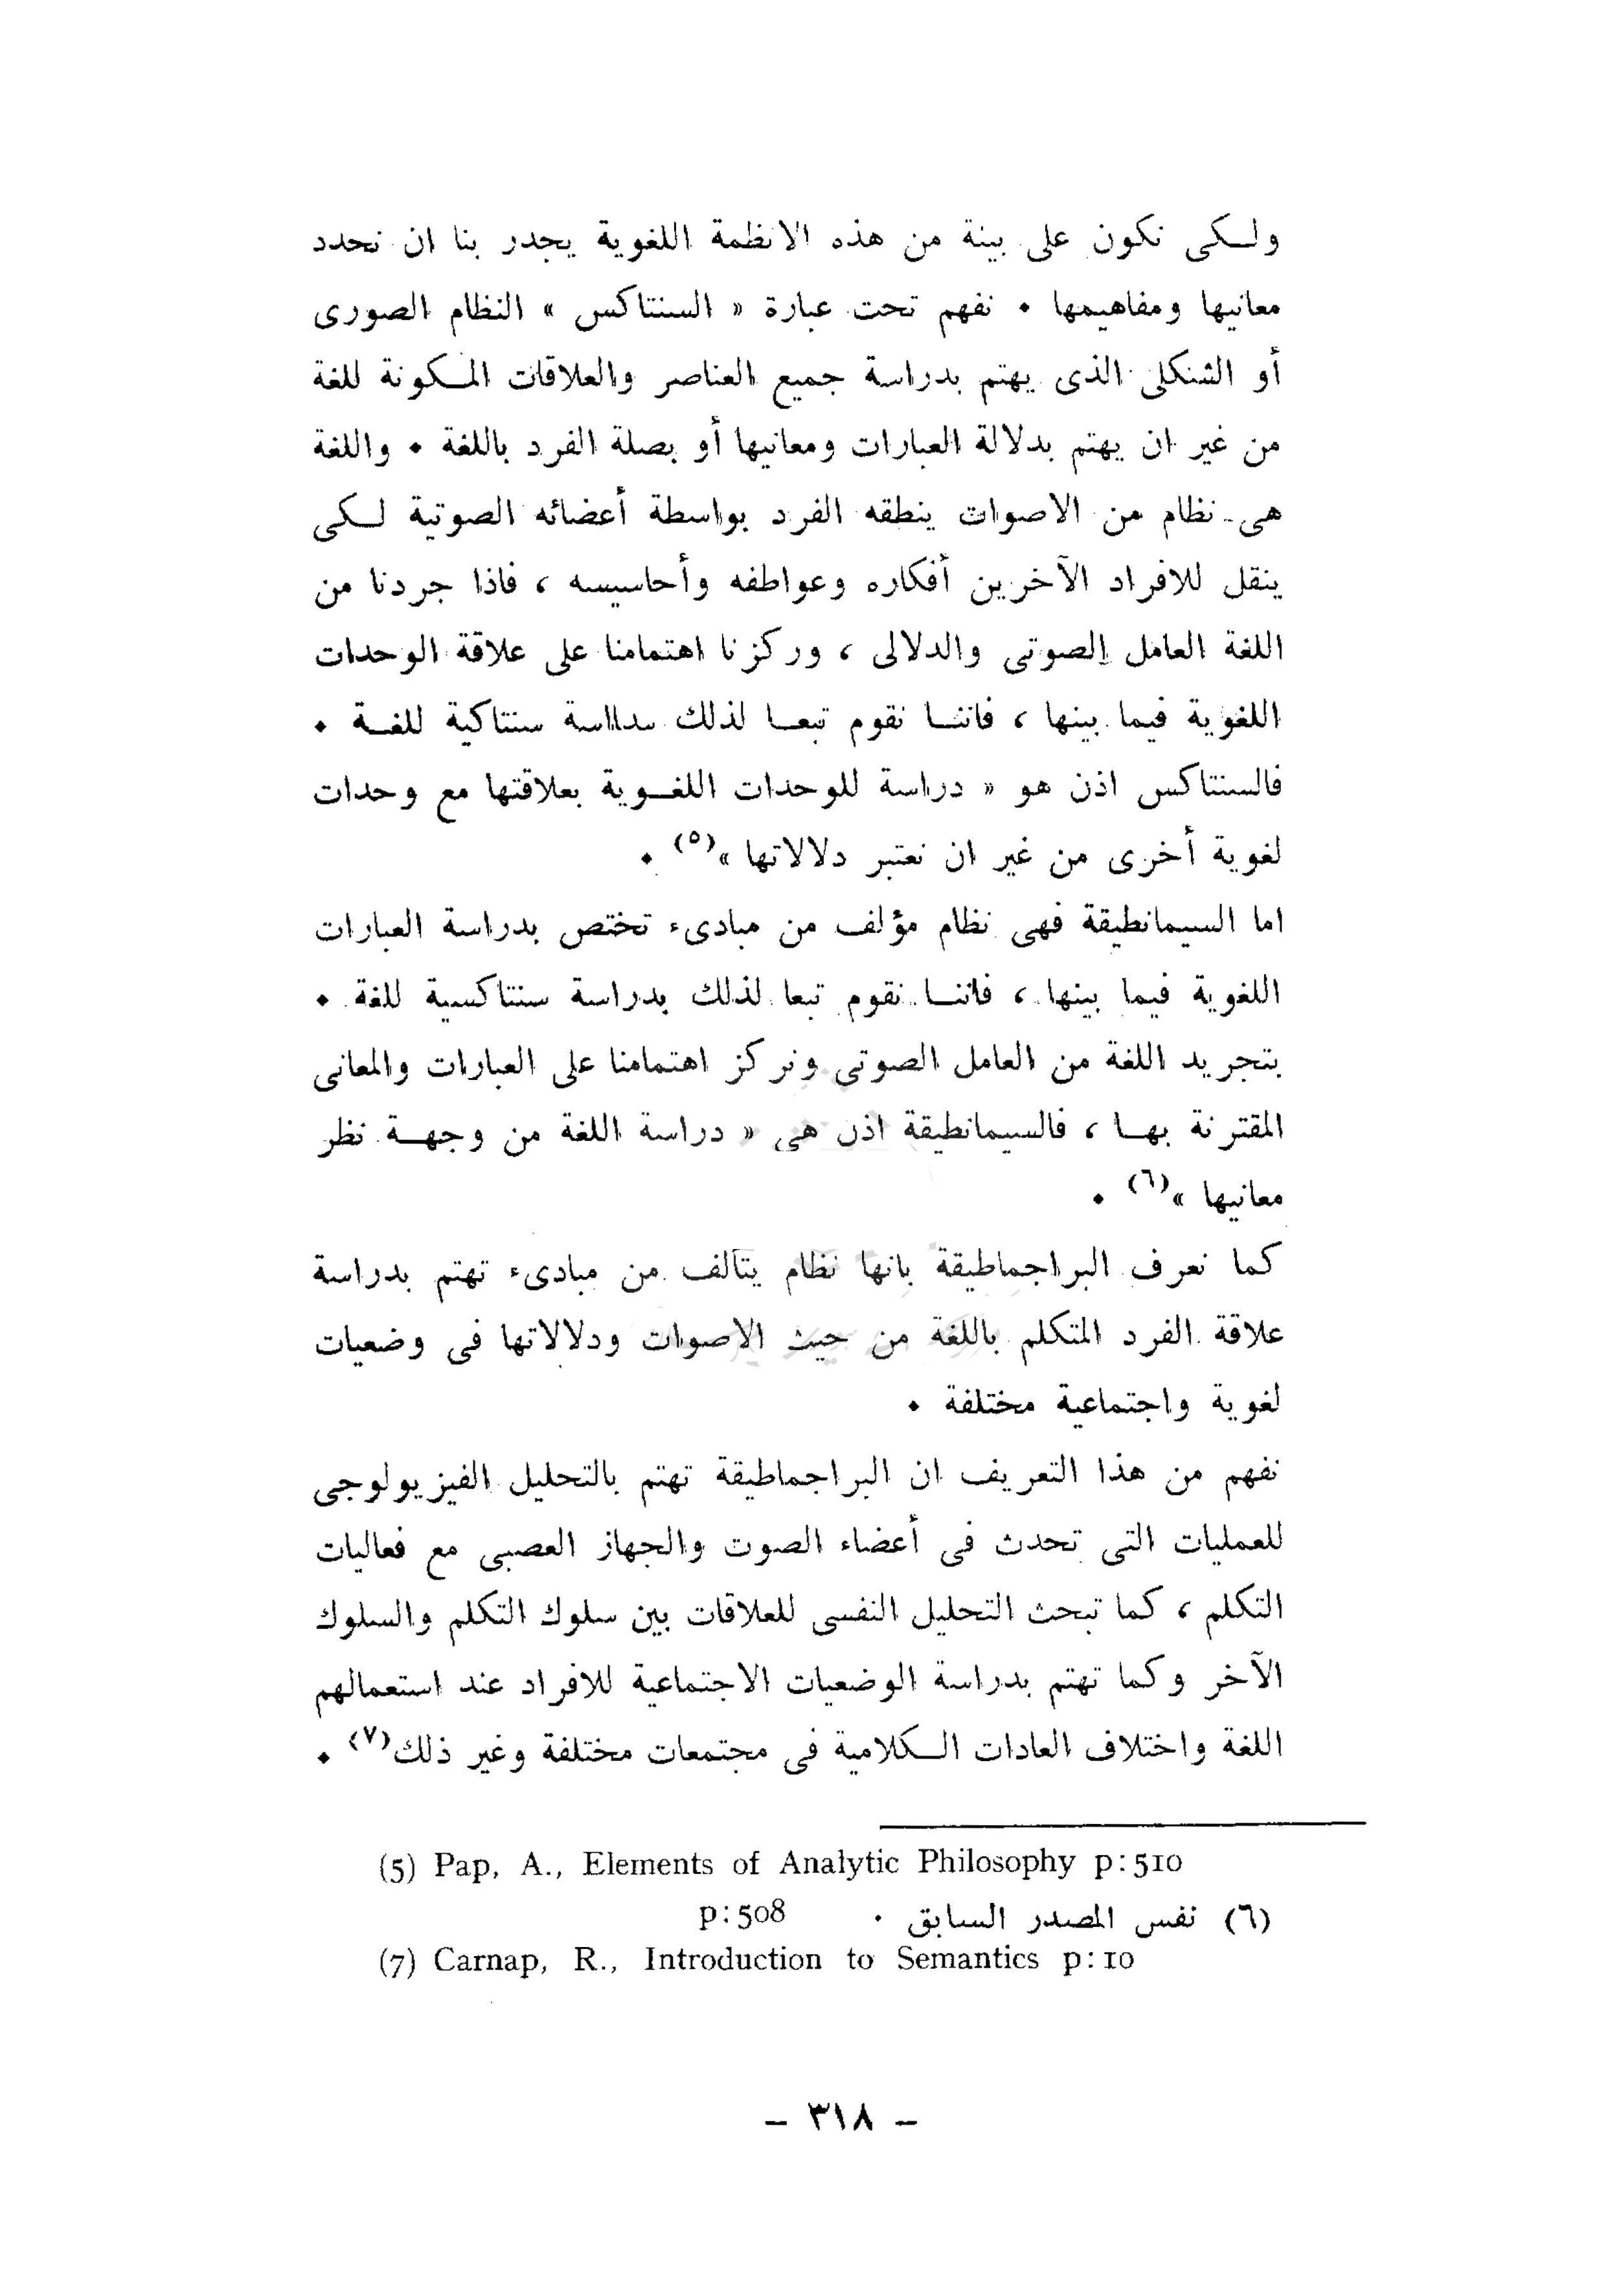 ولـكى نكون على بينة من هذه الانظمة اللغوية يجدر بنا ان نحدد
معانيها ومفاهيمها • نفهم تحت عبارة « السنتاكس » النظام الصورى
أو الشكلى الذى يهتم بدراسة جميع العناصر والعلاقات المـكونة للغة
من غير ان يهتم بدلالة العبارات ومعانيها أو بصلة الفرد باللغة • واللغة
هى نظام من الاصوات ينطقه الفرد بواسطة أعضائه الصوتية لـكى
ينقل للافراد الآخرين أفكاره وعواطفه وأحاسيسه ، فاذا جردنا من
اللغة العامل الصوتى والدلالى ، وركزنا اهتمامنا على علاقة الوحدات
اللغوية فيما بينها ، فاننـا نقوم تبعـا لذلك سنتاكية للغـة •
فالسنتاكس اذن هو « دراسة للوحدات اللغـوية بعلاقتها مع وحدات
لغوية أخرى من غير ان نعتبر دلالاتها »(٥) •
اما السيمانطيقة فهى نظام مؤلف من مبادىء تختص بدراسة العبارات
اللغوية فيما بينها ، فاننـا نقوم تبعا لذلك بدراسة سنتاكسية للغة •
بتجريد اللغة من العامل الصوتى ونركز اهتمامنا على العبارات والمعانى
المقترنة بهـا ، فالسيمانطيقة اذن هى « دراسة اللغة من وجهـة نظر
معانيها »(٦) •
كما نعرف البراجماطيقة بانها نظام يتألف من مبادىء تهتم بدراسة
علاقة الفرد المتكلم باللغة من حيث الاصوات ودلالاتها فى وضعيات
لغوية واجتماعية مختلفة •
نفهم من هذا التعريف ان البراجماطيقة تهتم بالتحليل الفيزيولوجى
للعمليات التى تحدث فى أعضاء الصوت والجهاز العصبى مع فعاليات
التكلم ، كما تبحث التحليل النفسى للعلاقات بين سلوك التكلم والسلوك
الآخر وكما تهتم بدراسة الوضعيات الاجتماعية للافراد عند استعمالهم
اللغة واختلاف العادات الـكلامية فى مجتمعات مختلفة وغير ذلك(٧) •
(5) Pap, A., Elements of Analytic Philosophy p:510
(٦) نفس المصدر السابق . p:508
(7) Carnap, R., Introduction to Semantics p:10
– ٣١٨ –